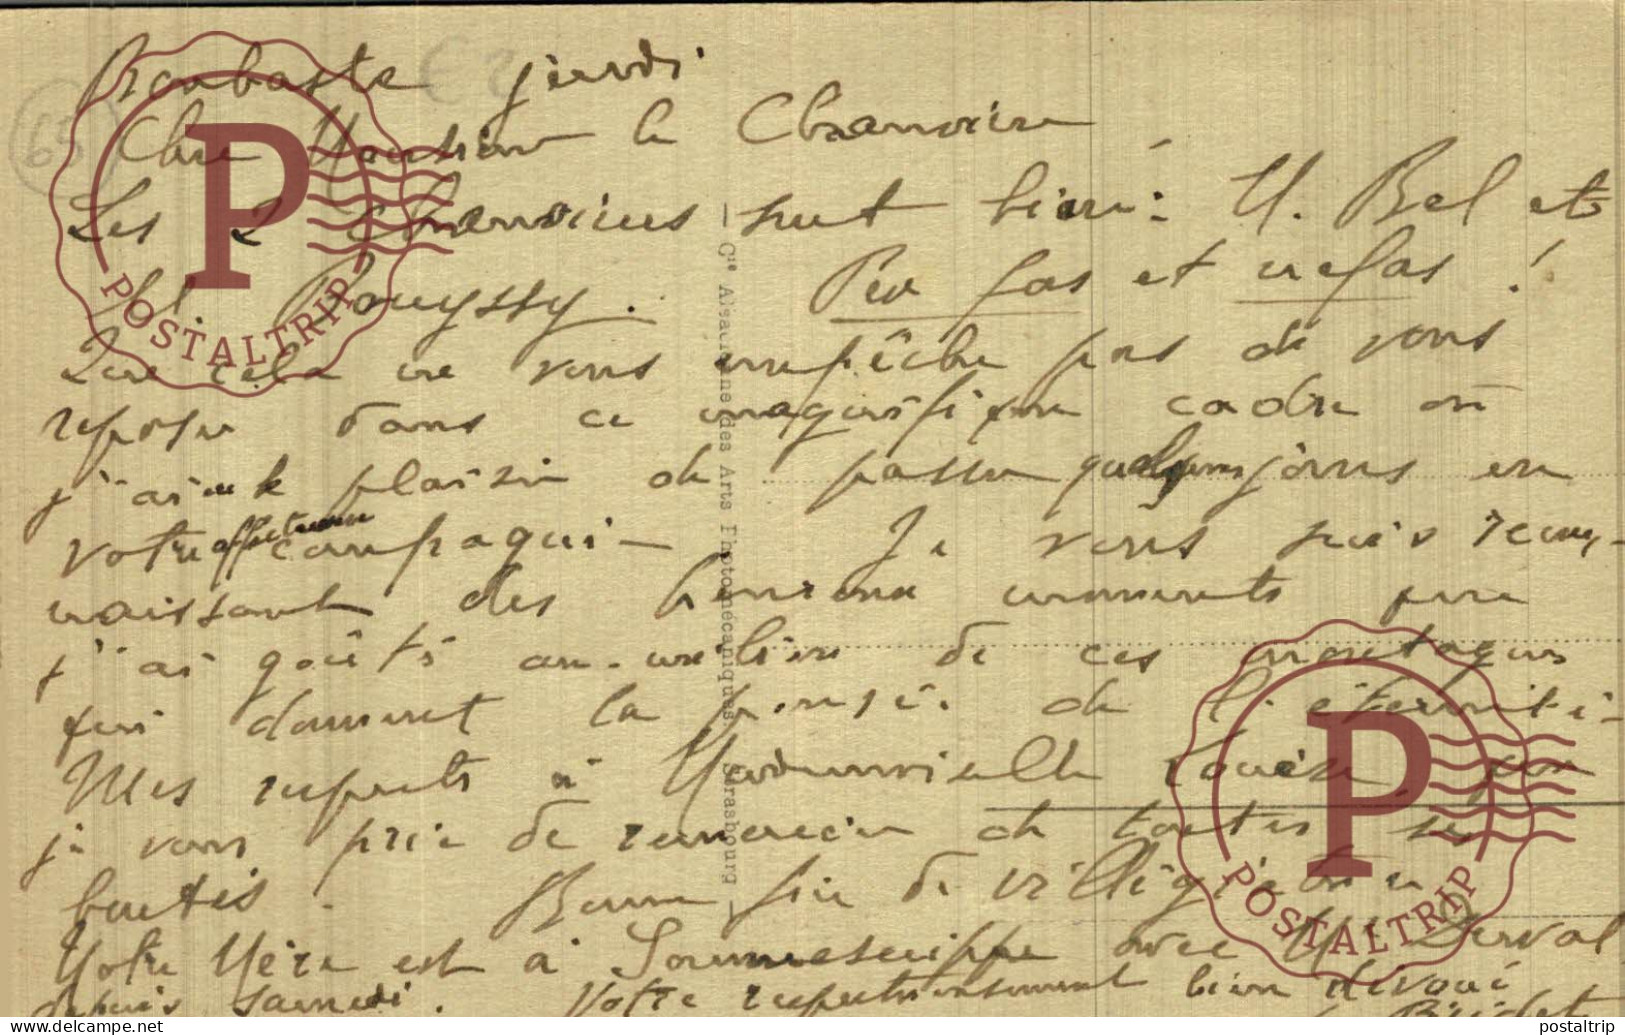 jeudi
Cher Monsieur le Chanoine
Les 2 chanoines sont bien : M. Bel et
M. Rouyssy. Per fas et nefas !
Que cela ne vous empêche pas de vous
reposer dans ce magnifique cadre où
j'ai eu le plaisir de passer quelques jours en
votre affectueuse compagnie - Je vous suis recon-
naissant des heureux moments que
j'ai goûtés au milieu de ces montagnes
qui donnent la pensée de l'éternité -
Mes respects à Mademoiselle Louise que
je vous prie de remercier de toutes ses
bontés. Bonne fin de villégiature
Votre Mère est à Sommesuippe avec M. Derval
depuis samedi. Votre respectueusement bien dévoué
Cie Alsacienne des Arts Photomécaniques Strasbourg
65
P
POSTALTRIP
P
POSTALTRIP
www.delcampe.net
postaltrip